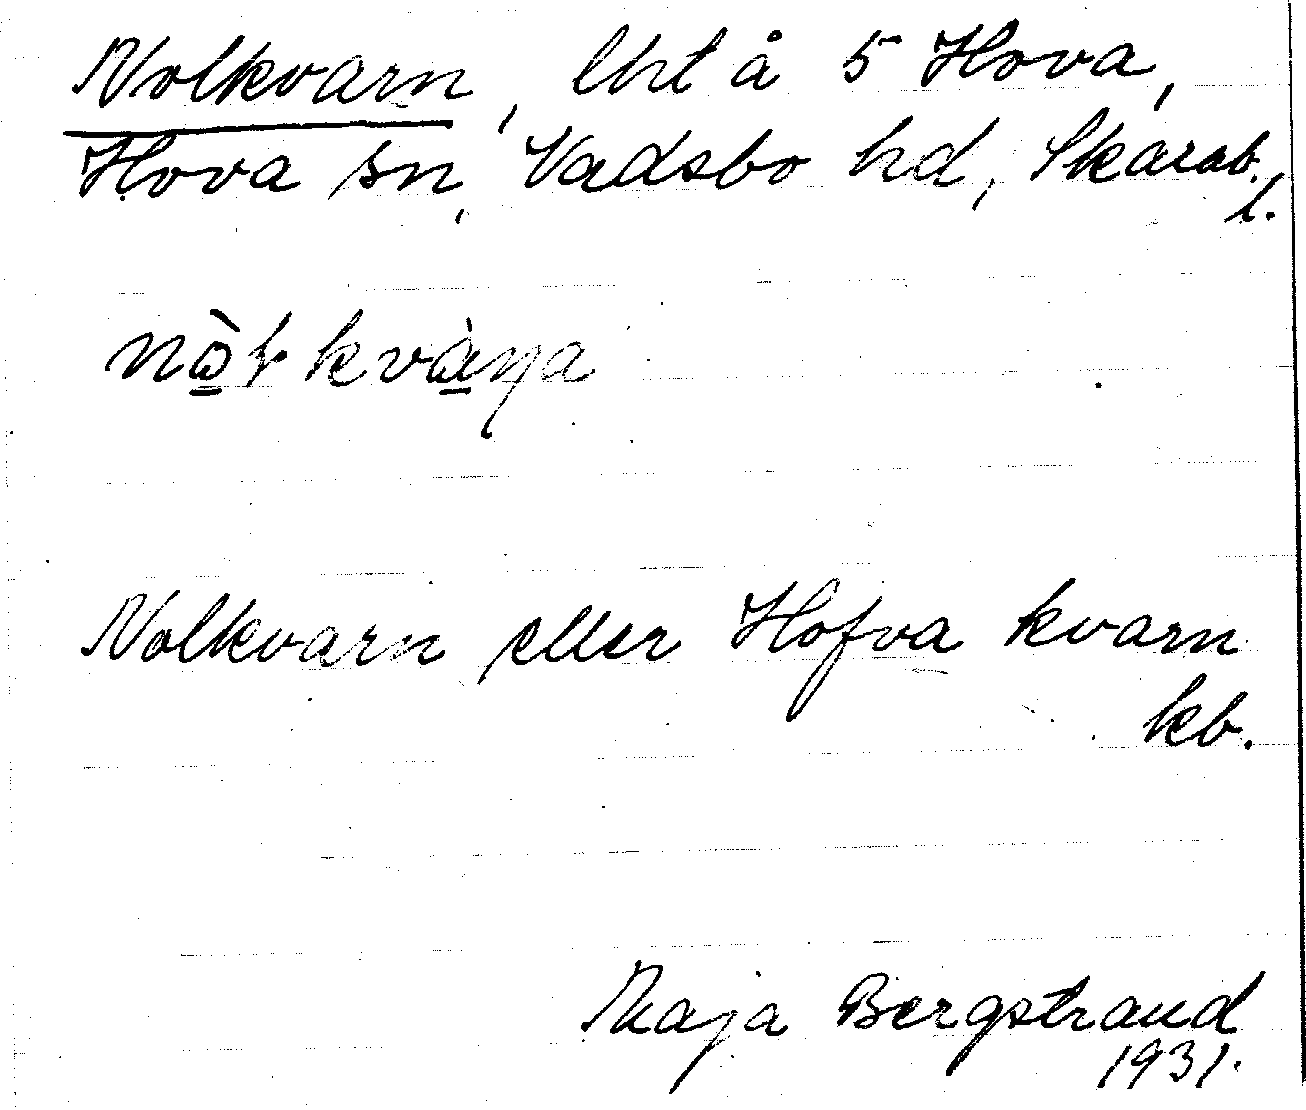 Nolkvarn, lht å 5 Hova,
Hova sn, Vadsbo hd, Skarab.
l.
Nolkvarn eller Hofva kvarn
kb.
Maja Bergstrand
1931.